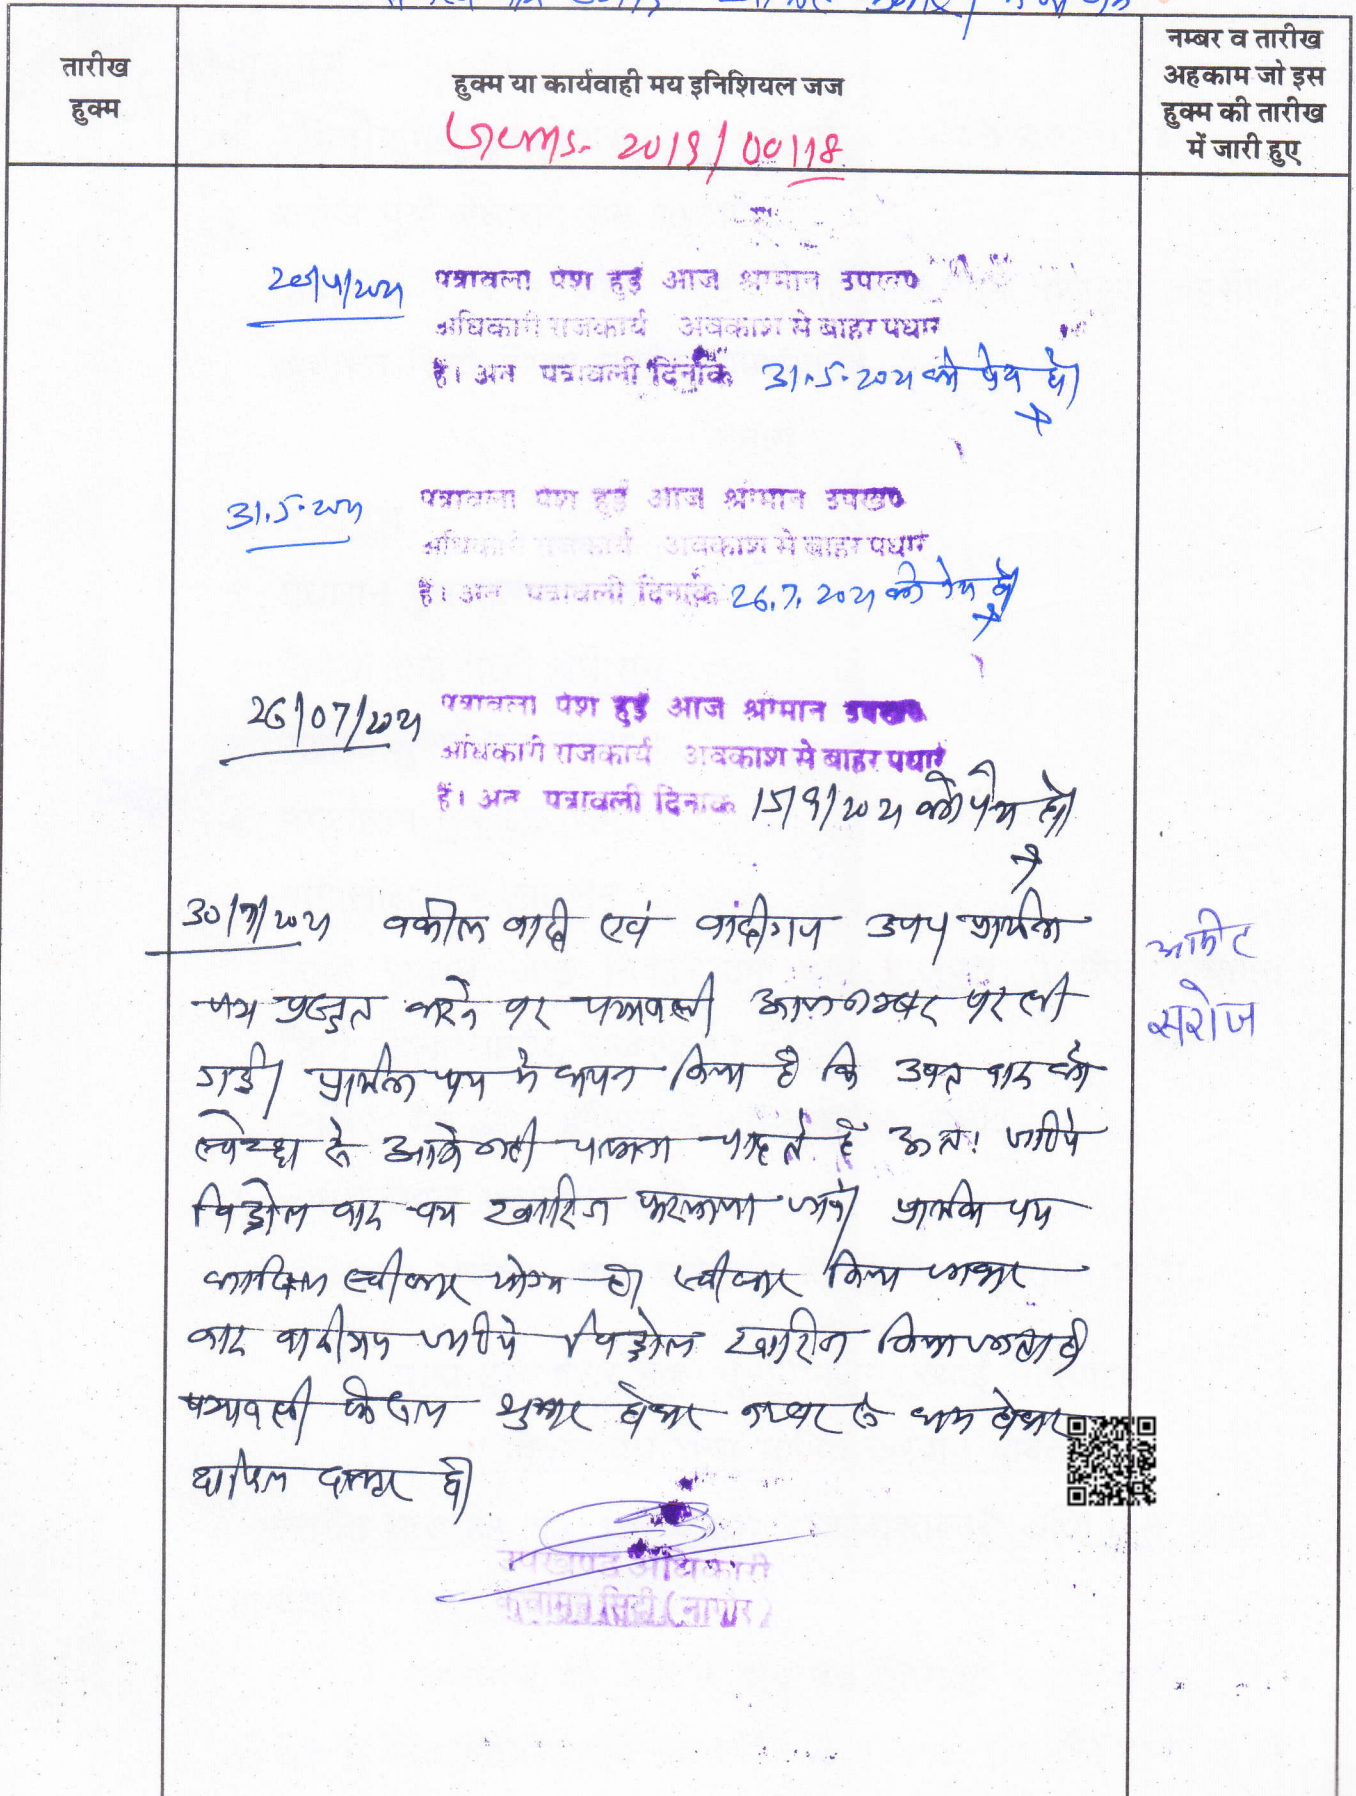 तारीख
हुक्म
हुक्म या कार्यवाही मय इनिशियल जज
नम्बर व तारीख
अहकाम जो इस
हुक्म की तारीख
में जारी हुए
2019/00118
पत्रावली पेश हुई आज श्रीमान उपखण्ड
अधिकारी राजकार्य अवकाश से बाहर पधारे
है। अत पत्रावली दिनांक 31.5.2021 को पेश हो।
31.5.2021 पत्रावली पेश हुई आज श्रीमान उपखण्ड
अधिकारी राजकार्य अवकाश से बाहर पधारे
है। अत पत्रावली दिनांक 26.7.2021 को पेश हो।
26/07/2021 पत्रावली पेश हुई आज श्रीमान उपखण्ड
अधिकारी राजकार्य अवकाश से बाहर पधारे
है। अत पत्रावली दिनांक 15/9/2021 को पेश हो।
30/7/2021 वकील वादी एवं वादीगण उपo प्रार्थना
पत्र प्रस्तुत करने पर पत्रावली आज नम्बर पर ली
गई। प्रार्थना पत्र मे कथन किया है कि उक्त वाद को
स्वेच्छा से आगे नही चलाना चाहते है अतः जरिये
विड्रोल वाद पत्र खारिज फरमाया जावे। प्रार्थना पत्र
स्वीकार योग्य है। स्वीकार किया जाकर
वाद वादीगण जरिये विड्रोल खारिज किया जाता है।
पत्रावली फैसल शुमार होकर नम्बर से कम होकर
दाखिल दफ्तर हो।
सरोज
उपखण्ड अधिकारी
कुचामन सिटी (नागौर)